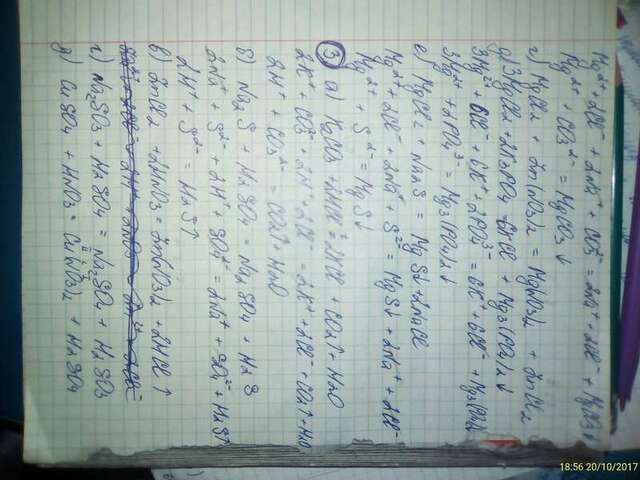 Mg²⁺ + 2Cl⁻ + 2Na⁺ + CO₃²⁻ = 2Na⁺ + 2Cl⁻ + MgCO₃↓
Mg²⁺ + CO₃²⁻ = MgCO₃↓
г) MgCl₂ + Zn(NO₃)₂ = Mg(NO₃)₂ + ZnCl₂
д) 3MgCl₂ + 2K₃PO₄ = 6KCl + Mg₃(PO₄)₂↓
3Mg²⁺ + 6Cl⁻ + 6K⁺ + 2PO₄³⁻ = 6K⁺ + 6Cl⁻ + Mg₃(PO₄)₂
3Mg²⁺ + 2PO₄³⁻ = Mg₃(PO₄)₂↓
е) MgCl₂ + Na₂S = MgS↓ + 2NaCl
Mg²⁺ + 2Cl⁻ + 2Na⁺ + S²⁻ = MgS↓ + 2Na⁺ + 2Cl⁻
Mg²⁺ + S²⁻ = MgS↓
③ а) K₂CO₃ + 2HCl = 2KCl + CO₂↑ + H₂O
2K⁺ + CO₃²⁻ + 2H⁺ + 2Cl⁻ = 2K⁺ + 2Cl⁻ + CO₂↑ + H₂O
2H⁺ + CO₃²⁻ = CO₂↑ + H₂O
б) Na₂S + H₂SO₄ = Na₂SO₄ + H₂S
2Na⁺ + S²⁻ + 2H⁺ + SO₄²⁻ = 2Na⁺ + SO₄²⁻ + H₂S↑
2H⁺ + S²⁻ = H₂S↑
в) ZnCl₂ + 2HNO₃ = Zn(NO₃)₂ + 2HCl↑
г) Na₂SO₃ + H₂SO₄ = Na₂SO₄ + H₂SO₃
д) CuSO₄ + HNO₃ = Cu(NO₃)₂ + H₂SO₄
18:56 20/10/2017